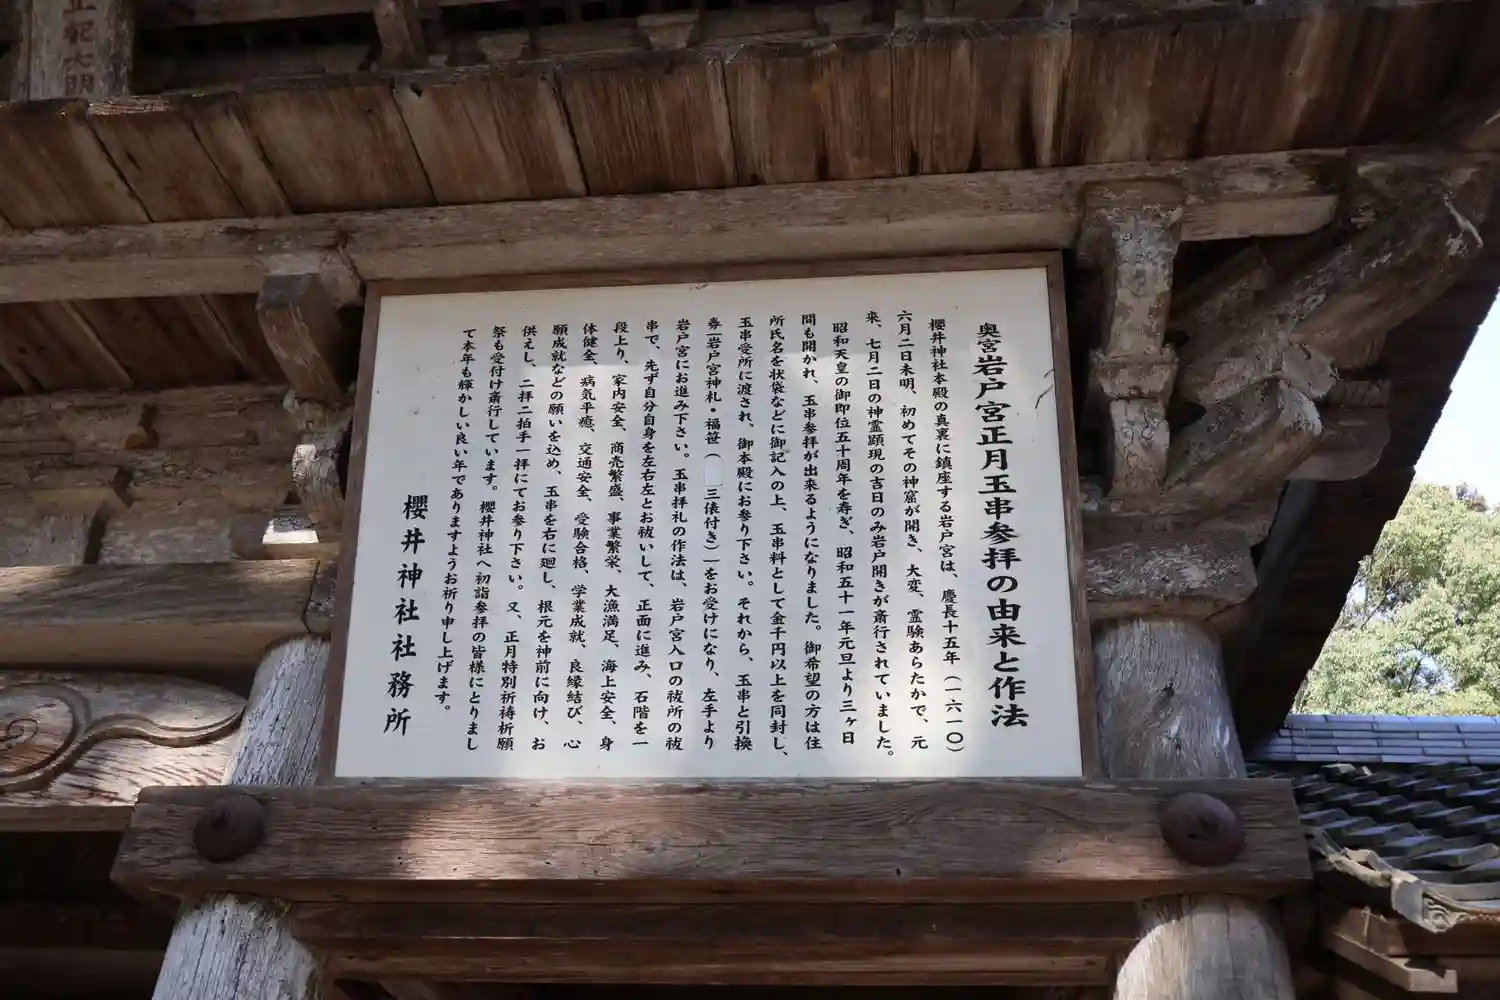 奥宮岩戸宮正月玉串参拝の由来と作法
櫻井神社本殿の真裏に鎮座する岩戸宮は、慶長十五年（一六一〇）
六月二日未明、初めてその神窟が開き、大変、霊験あらたかで、元
来、七月二日の神霊顕現の吉日のみ岩戸開きが斎行されていました。
昭和天皇の御即位五十周年を寿ぎ、昭和五十一年元旦より三ヶ日
間も開かれ、玉串参拝が出来るようになりました。御希望の方は住
所氏名を状袋などに御記入の上、玉串料として金千円以上を同封し、
玉串受所に渡され、御本殿にお参り下さい。それから、玉串と引換
券（岩戸宮神札・福笹（　三俵付き））をお受けになり、左手より
岩戸宮にお進み下さい。玉串拝礼の作法は、岩戸宮入口の祓所の祓
串で、先ず自分自身を左右左とお祓いして、正面に進み、石階を一
段上り、家内安全、商売繁盛、事業繁栄、大漁満足、海上安全、身
体健全、病気平癒、交通安全、受験合格、学業成就、良縁結び、心
願成就などの願いを込め、玉串を右に廻し、根元を神前に向け、お
供えし、二拝二拍手一拝にてお参り下さい。又、正月特別祈祷祈願
祭も受付け斎行しています。櫻井神社へ初詣参拝の皆様にとりまし
て本年も輝かしい良い年でありますようお祈り申し上げます。
櫻井神社社務所